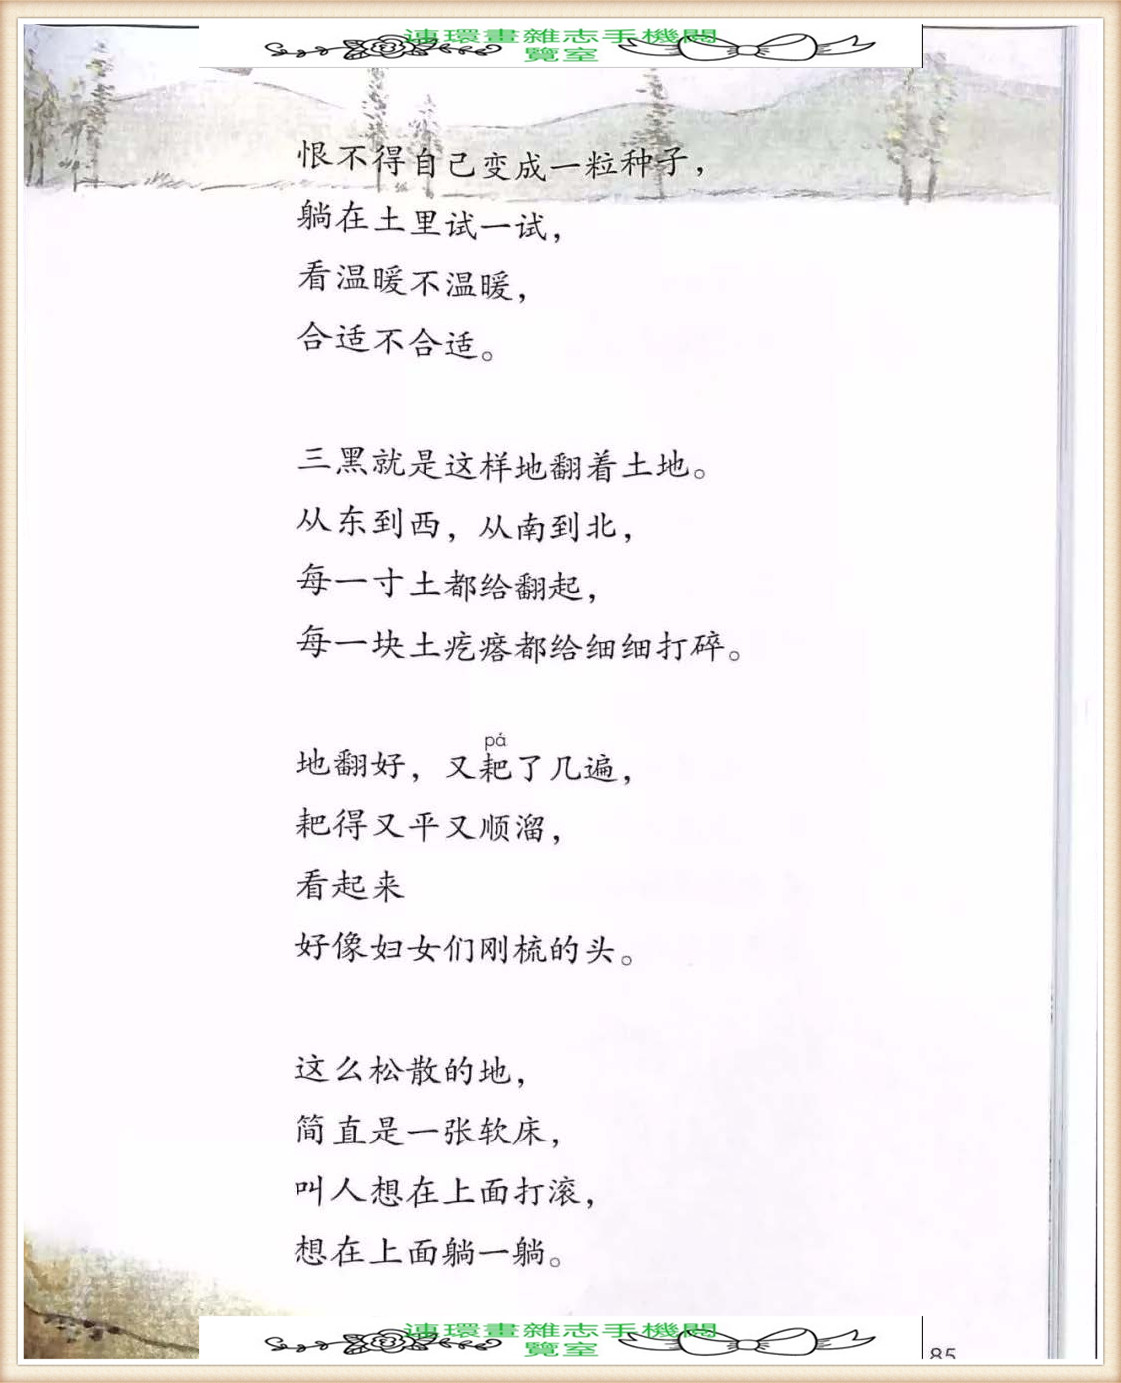 連環畫雜志手機閱
覽室
恨不得自己变成一粒种子，
躺在土里试一试，
看温暖不温暖，
合适不合适。
三黑就是这样地翻着土地。
从东到西，从南到北，
每一寸土都给翻起，
每一块土疙瘩都给细细打碎。
pá
地翻好，又耙了几遍，
耙得又平又顺溜，
看起来
好像妇女们刚梳的头。
这么松散的地，
简直是一张软床，
叫人想在上面打滚，
想在上面躺一躺。
連環畫雜志手機閱
覽室
85